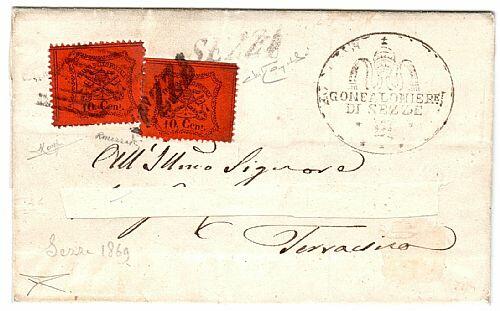 SEZZE
10 Cent.
SEZZE
10 Cent.
GONFALONIERE
DI SEZZE
All'Illmo Signore
Terracina
Sezze 1869